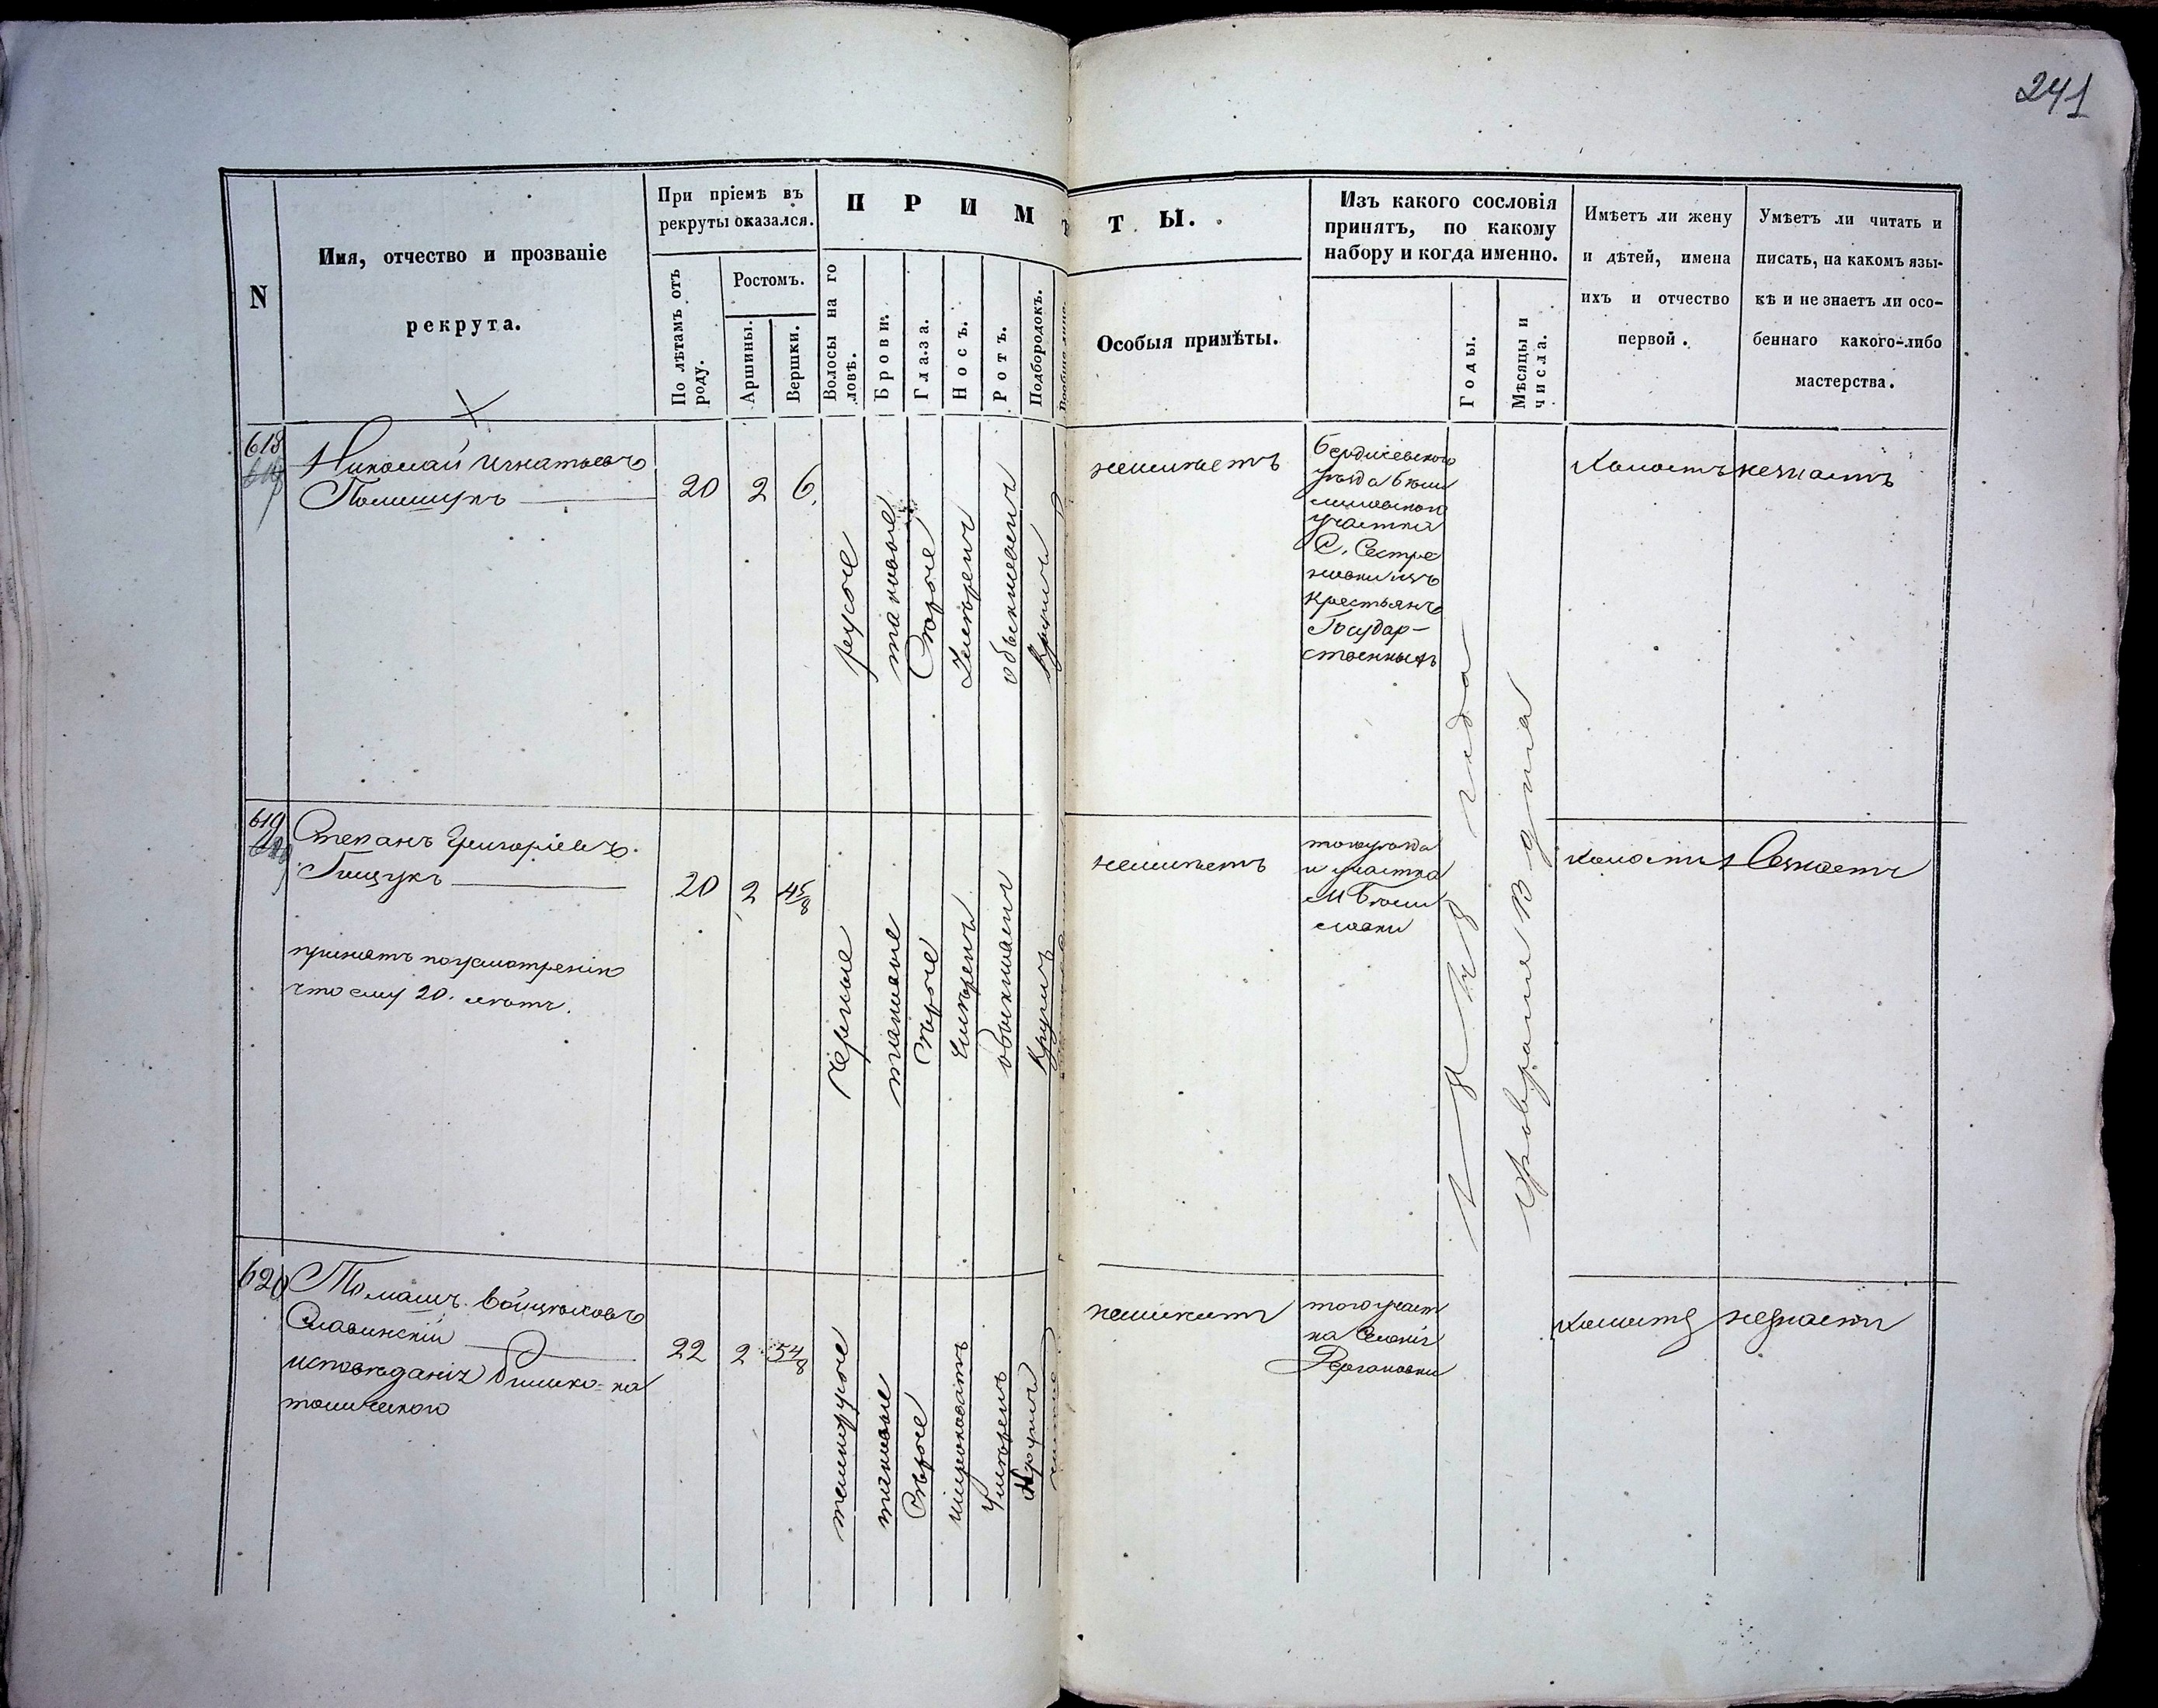 241
N
Имя, отчество и прозваніе
рекрута.
При пріемѣ въ
рекруты оказался.
По лѣтамъ отъ
роду.
Ростомъ.
Аршины.
Вершки.
ПРИМѢТЫ.
Волосы на го
ловѣ.
Брови.
Глаза.
Носъ.
Ротъ.
Подбородокъ.
Вообще лицо.
Особыя примѣты.
Изъ какого сословія
принятъ, по какому
набору и когда именно.
Годы.
Мѣсяцы и
числа.
Имѣетъ ли жену
и дѣтей, имена
ихъ и отчество
первой.
Умѣетъ ли читать и
писать, на какомъ язы-
кѣ и не знаетъ ли осо-
беннаго какого-либо
мастерства.
618
Николай Игнатьевъ
Полищукъ
20
2
6.
русые
таковые
Сѣрые
Умѣренъ
обыкновенъ
Круглъ
неимѣетъ
Бердичевскаго
уѣзда
участка
С. Сестре
новки изъ
крестьянъ
Государ-
ственныхъ
1878 года
Февраля 13 дня
Холостъ
незнаетъ
619
Степанъ Григоріевъ.
Гищукъ
принятъ поусмотренію
что ему 20. лѣтъ.
20
2
4 5/8
Черные
таковые
Сѣрые
Умѣренъ
обыкновенъ
Круглъ
неимѣетъ
тогоуѣзда
и участка
холостъ
Незнаетъ
620
Томашъ Войцѣховъ
Славинскій
исповѣданія Римско-ка
толическаго
22
2
5 4/8
темнорусые
таковые
Сѣрые
широковатъ
Умѣренъ
Круглъ
чистое
неимѣетъ
того участ
ка
холостъ
незнаетъ